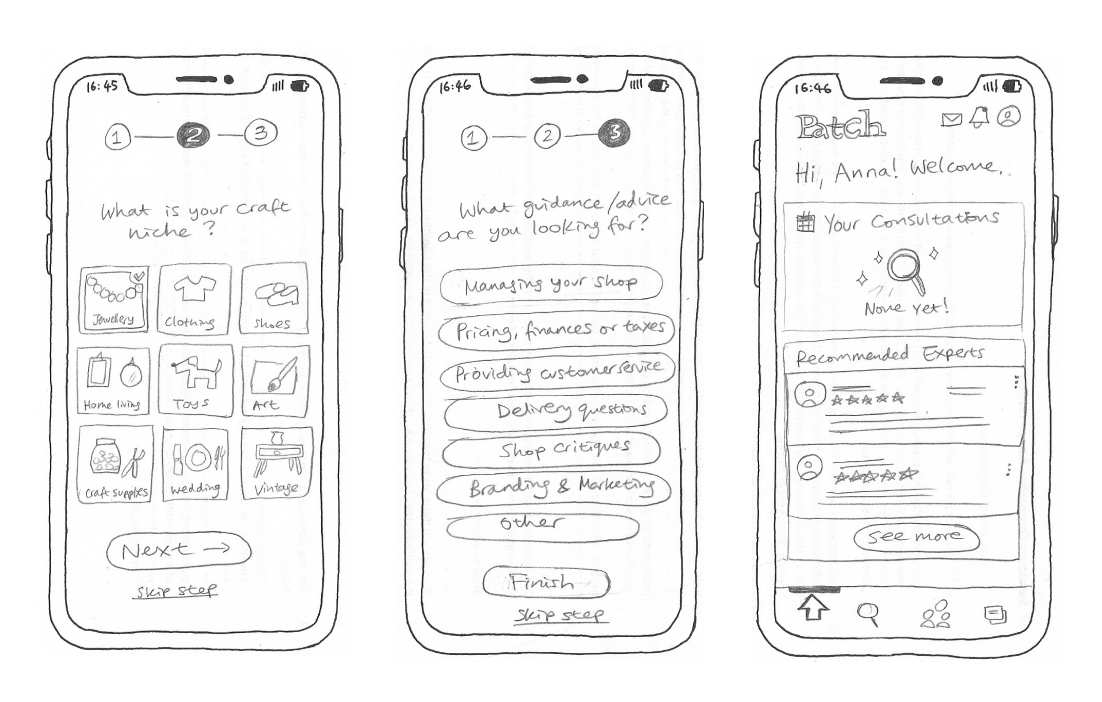 16:45
1
2
3
What is your craft
niche?
Jewellery
Clothing
Shoes
Home living
Toys
Art
Craft supplies
Wedding
Vintage
Next →
Skip step
16:46
1
2
3
What guidance/advice
are you looking for?
Managing your shop
Pricing, finances or taxes
Providing customer service
Delivery questions
Shop critiques
Branding & Marketing
Other
Finish
Skip step
16:46
Patch
Hi, Anna! Welcome.
Your Consultations
None yet!
Recommended Experts
See more